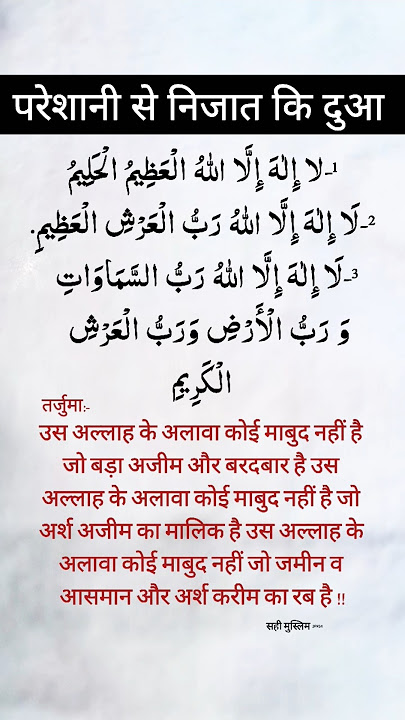 परेशानी से निजात कि दुआ
1-لا إِلهَ إِلَّا اللهُ الْعَظِيمُ الْحَلِيمُ
2-لَا إِلهَ إِلَّا اللهُ رَبُّ الْعَرْشِ الْعَظِيمِ.
3-لَا إِلهَ إِلَّا اللهُ رَبُّ السَّمَاوَاتِ
وَ رَبُّ الْأَرْضِ وَرَبُّ الْعَرْشِ
الْكَرِيمِ
तर्जुमा:-
उस अल्लाह के अलावा कोई माबुद नहीं है
जो बड़ा अजीम और बरदबार है उस
अल्लाह के अलावा कोई माबुद नहीं है जो
अर्श अजीम का मालिक है उस अल्लाह के
अलावा कोई माबुद नहीं जो जमीन व
आसमान और अर्श करीम का रब है !!
सही मुस्लिम